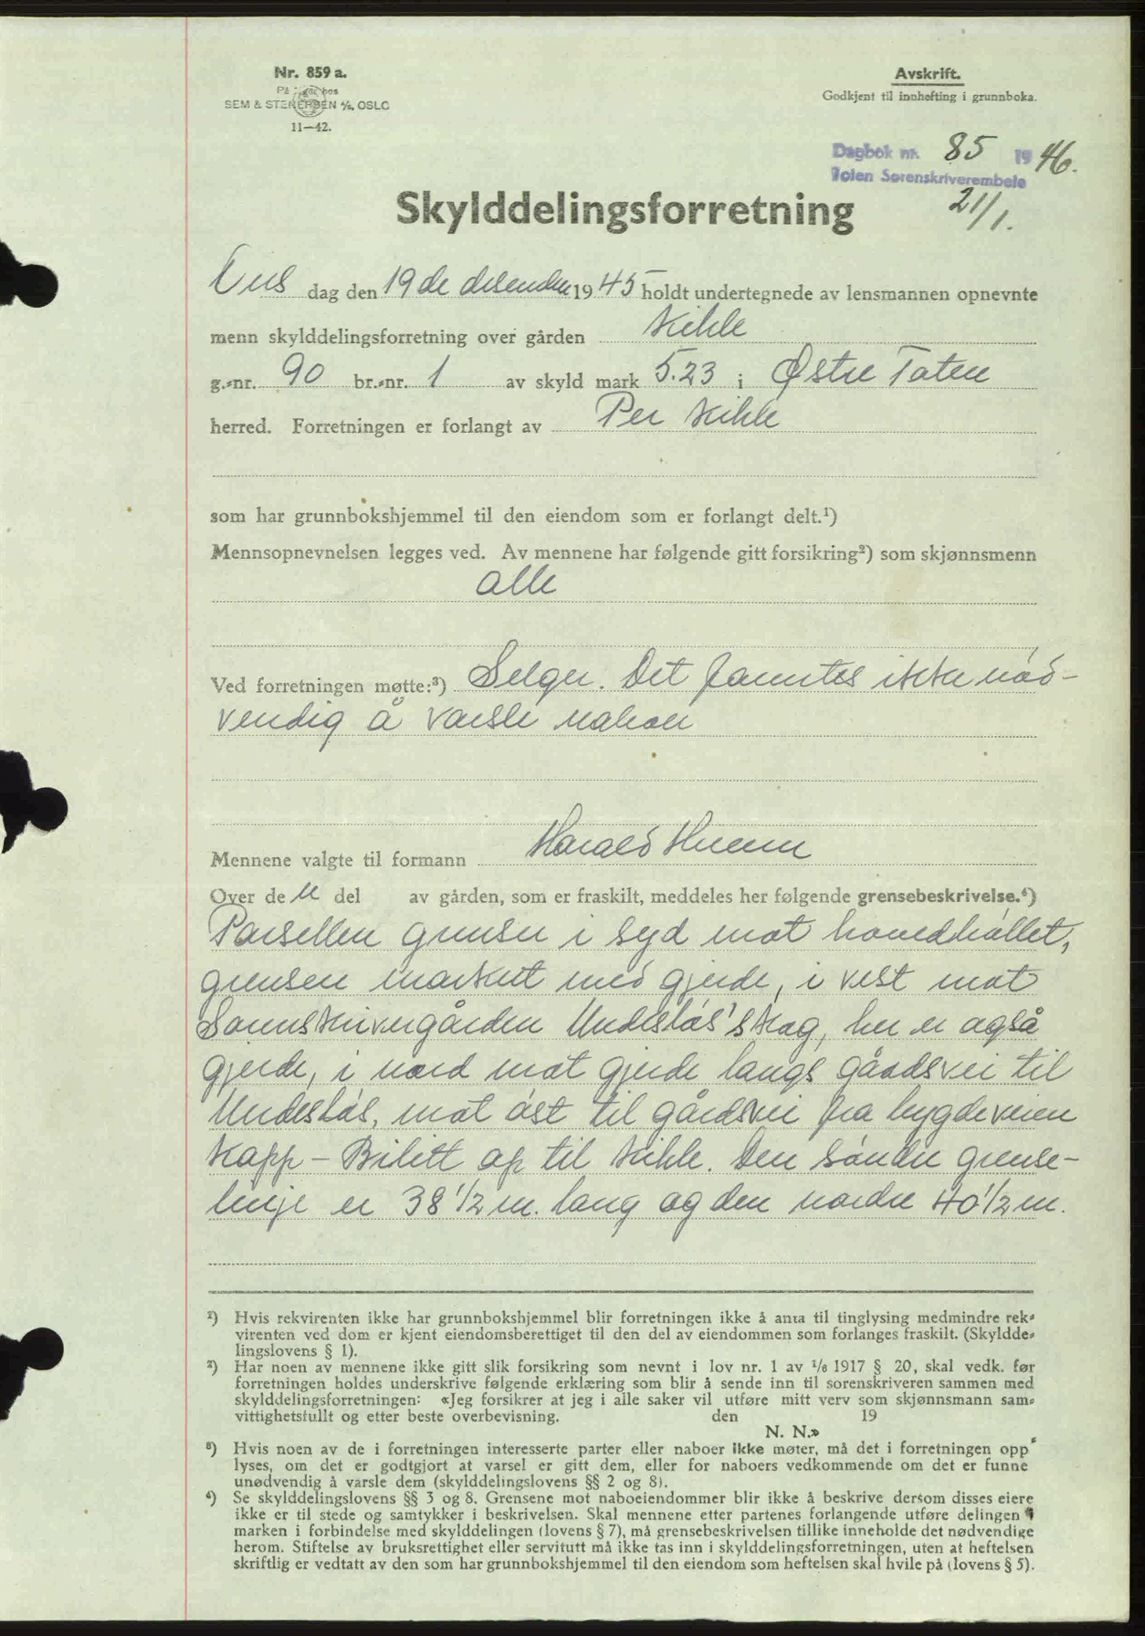 Nr. 859 a.
På lager hos
SEM & STENERSEN A/S, OSLO
11—42.
Avskrift.
Godkjent til innhefting i grunnboka.
Dagbok nr. 85 1946.
Toten Sorenskriverembete
21/1.
Skylddelingsforretning
Ons dag den 19de desember 1945 holdt undertegnede av lensmannen opnevnte
menn skylddelingsforretning over gården Kihle
g.-nr. 90 br.-nr. 1 av skyld mark 5.23 i Østre Toten
herred. Forretningen er forlangt av Per Kihle
som har grunnbokshjemmel til den eiendom som er forlangt delt.¹)
Mennsopnevnelsen legges ved. Av mennene har følgende gitt forsikring²) som skjønnsmenn
alle
Ved forretningen møtte:³) Selger. Det fanntes ikke nød-
vendig å varsle naboer
Mennene valgte til formann Harald
Over de n del av gården, som er fraskilt, meddeles her følgende grensebeskrivelse.⁴)
Parsellen grenser i syd mot hovedbøllet,
grensen market med gjerde, i vest mot
Sorenskrivergården Undesløs' skog, her er også
gjerde, i nord mot gjerde langs gårdsvei til
Undesløs, mot øst til gårdsvei fra bygdeveien
Kapp - Bilitt op til Kihle. Den søndre grense-
linje er 38 1/2 m. lang og den nordre 40 1/2 m.
¹) Hvis rekvirenten ikke har grunnbokshjemmel blir forretningen ikke å anta til tinglysing medmindre rek-
virenten ved dom er kjent eiendomsberettiget til den del av eiendommen som forlanges fraskilt. (Skyldde-
lingslovens § 1).
²) Har noen av mennene ikke gitt slik forsikring som nevnt i lov nr. 1 av 1/6 1917 § 20, skal vedk. før
forretningen holdes underskrive følgende erklæring som blir å sende inn til sorenskriveren sammen med
skylddelingsforretningen: «Jeg forsikrer at jeg i alle saker vil utføre mitt verv som skjønnsmann sam-
vittighetsfullt og etter beste overbevisning. den 19
N. N.»
³) Hvis noen av de i forretningen interesserte parter eller naboer ikke møter, må det i forretningen opp-
lyses, om det er godtgjort at varsel er gitt dem, eller for naboers vedkommende om det er funne
unødvendig å varsle dem (skylddelingslovens §§ 2 og 8).
⁴) Se skylddelingslovens §§ 3 og 8. Grensene mot naboeiendommer blir ikke å beskrive dersom disses eiere
ikke er til stede og samtykker i beskrivelsen. Skal mennene etter partenes forlangende utføre delingen
marken i forbindelse med skylddelingen (lovens § 7), må grensebeskrivelsen tillike inneholde det nødvendige
herom. Stiftelse av bruksrettighet eller servitutt må ikke tas inn i skylddelingsforretningen, uten at heftelsen
skriftlig er vedtatt av den som har grunnbokshjemmel til den eiendom som heftelsen skal hvile på (lovens § 5).